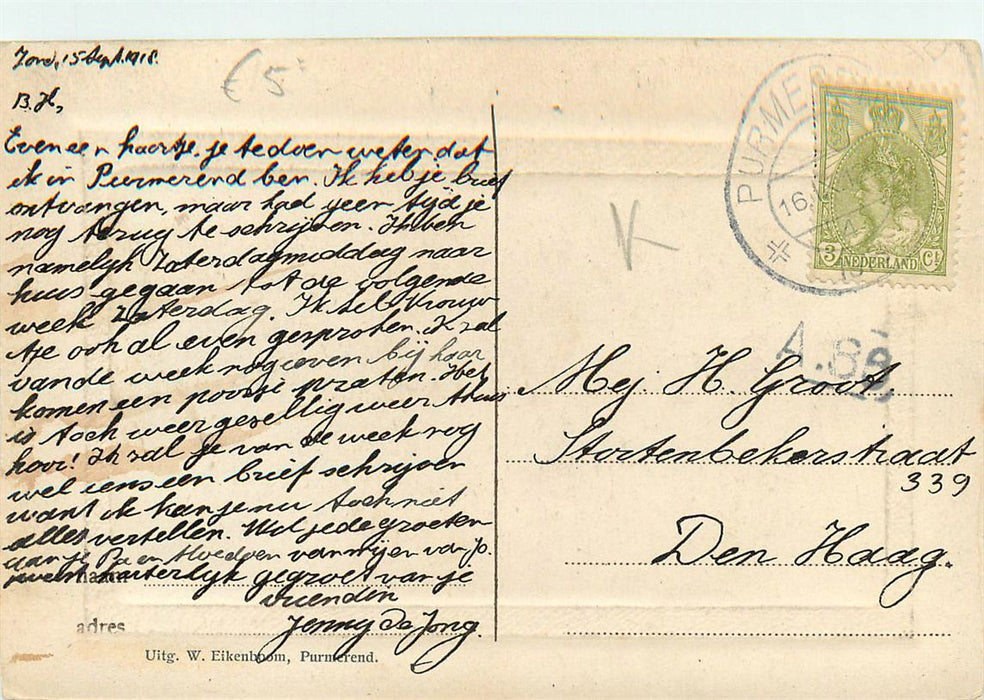 Zond, 15 Sept. 1918.
B. H,
Even een kaartje je te doen weten dat
ik in Purmerend ben. Ik heb je brief
ontvangen, maar had geen tijd je
nog terug te schrijven. Ik ben
namelijk Zaterdagmiddag naar
huis gegaan tot de volgende
week Zaterdag. Ik heb Vrouw
tje ook al even gesproken. Ik zal
van de week nog even bij haar
komen een poosje praten. Het
is toch weer gezellig weer thuis
hoor! Ik zal je van de week nog
wel eens een brief schrijven
want ik kan je nu toch niet
alles vertellen. Wil je de groeten
aan je Pa en Moe doen van mij en van Jo.
hartelijk gegroet van je
vriendin
Jenny de Jong.
naam
adres
Uitg. W. Eikenboom, Purmerend.
€ 5
K
PURMEREND
16.
3 NEDERLAND Ct
A.8B
Mej H. Groot
Stortenbekerstraat
339
Den Haag.